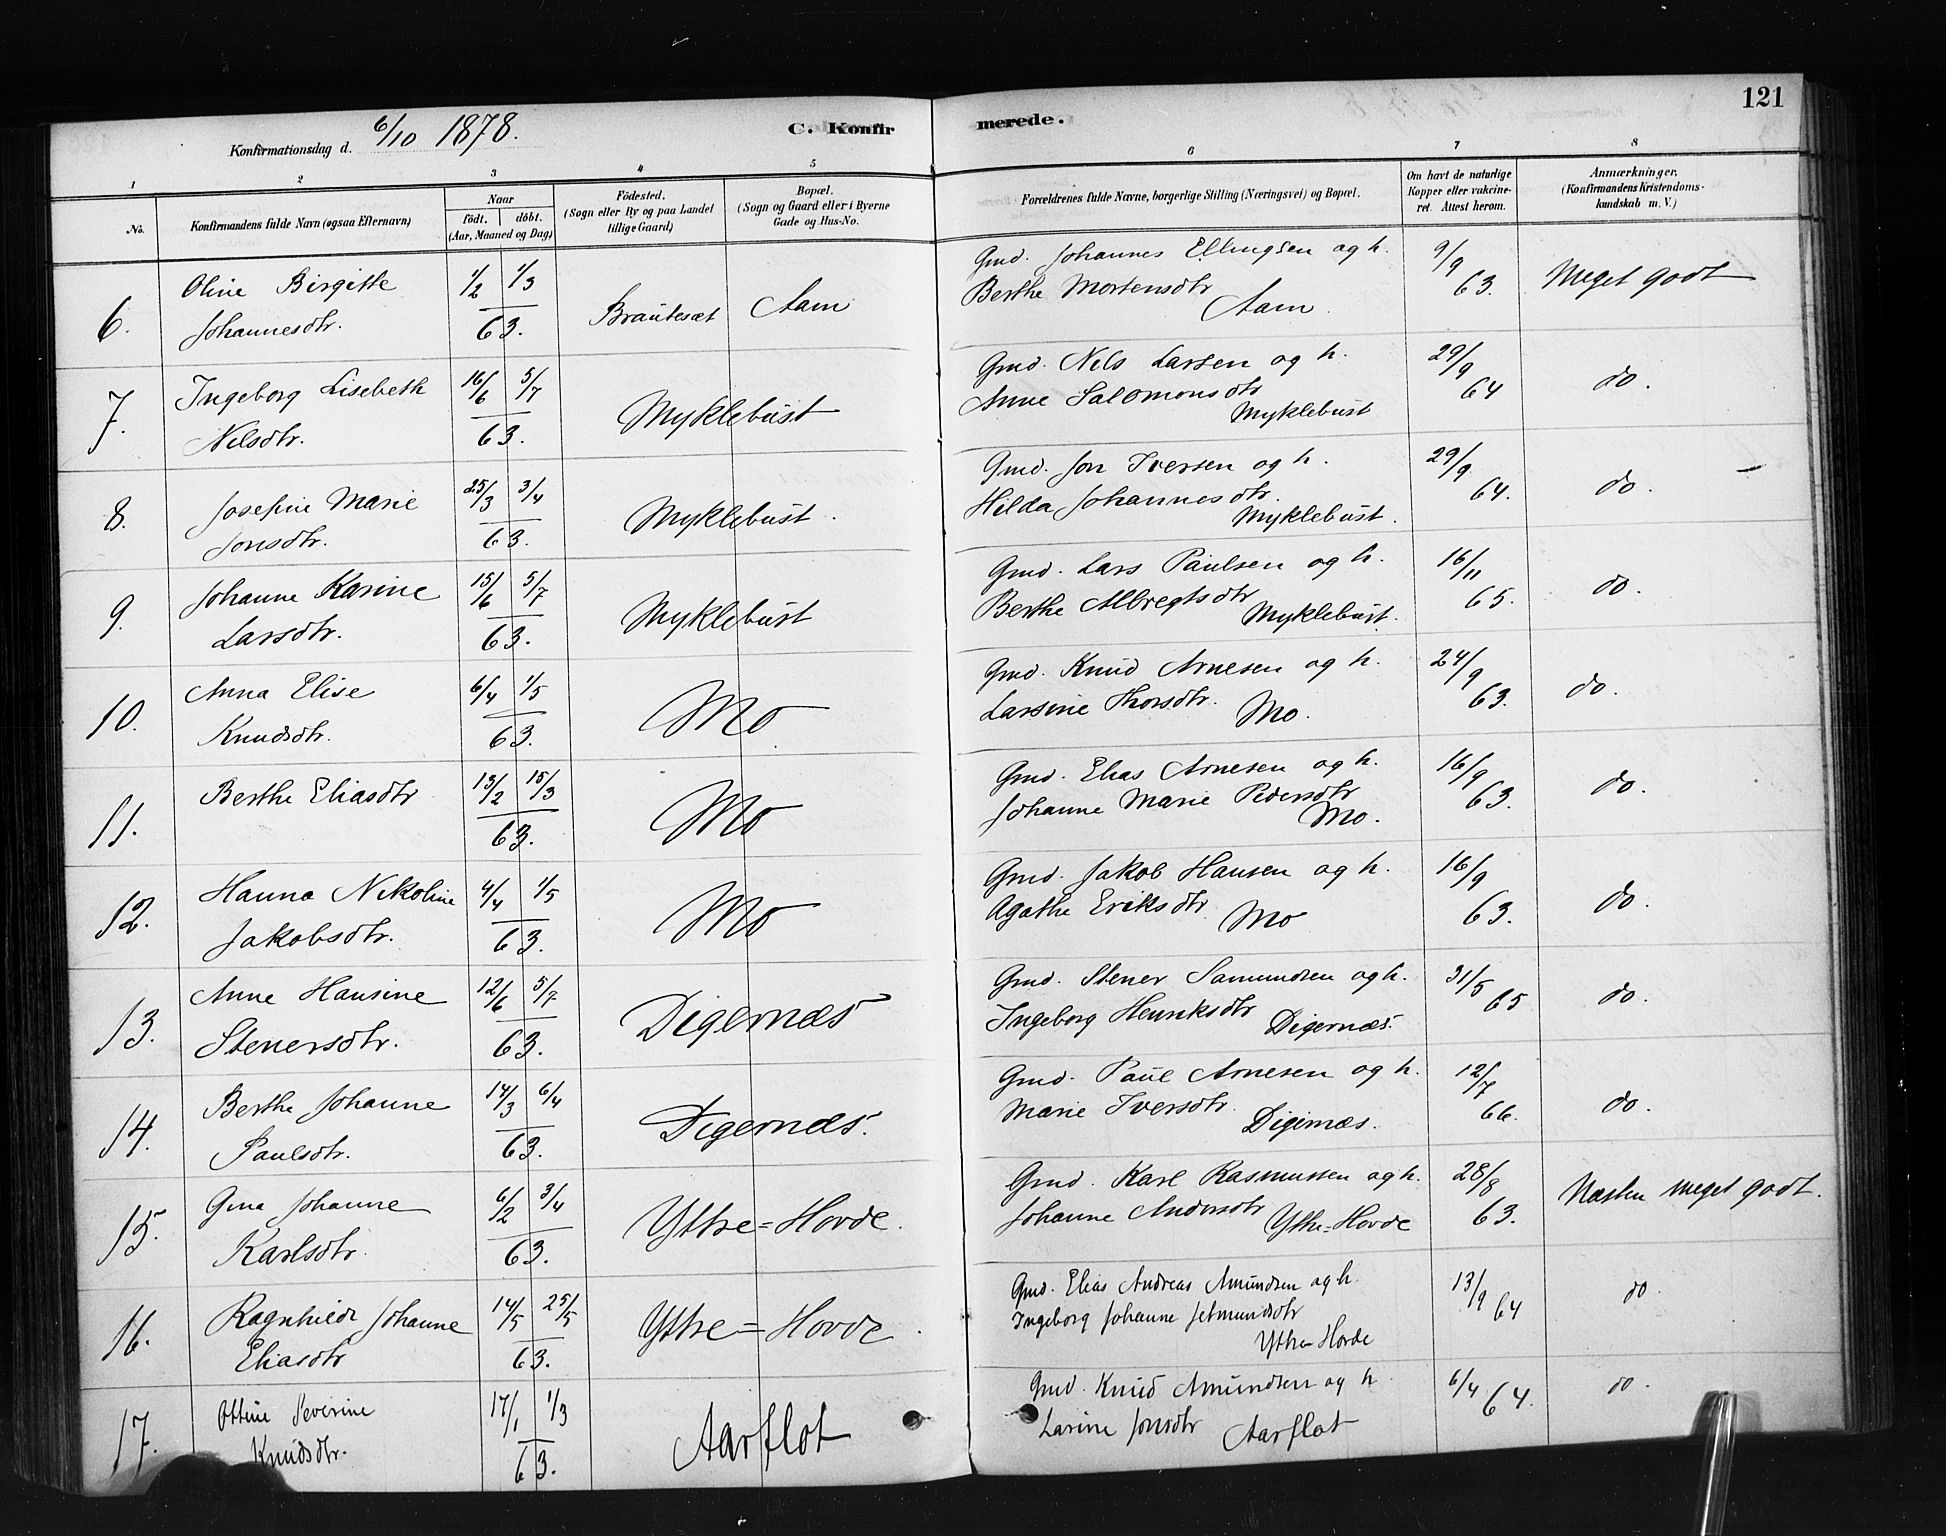 121
Konfirmationsdag d. 6/10 1878. C. Konfirmerede.
1 2 3 4 5 6 7 8
No.
Konfirmandens fulde Navn (ogsaa Efternavn)
Naar
født. døbt.
(Aar, Maaned og Dag)
Fødested.
(Sogn eller By og paa Landet
tillige Gaard)
Bopæl.
(Sogn og Gaard eller i Byerne
Gade og Hus-No.
Forældrenes fulde Navne, borgerlige Stilling (Næringsvei) og Bopæl.
Om havt de naturlige
Kopper eller vakcine-
ret. Attest herom.
Anmærkninger.
(Konfirmandens Kristendoms-
kundskab m. V.)
6. Oline Birgitte 1/2 1/3 Brautesæt Aam Gmd. Johannes Ellingsen og h. 9/9 Meget godt
Johannesdtr. 63. Berthe Mortensdtr Aam. 63.
7. Ingeborg Lisebeth 16/6 5/7 Myklebust Gmd. Nils Larsen og h. 29/9 do.
Nilsdtr. 63. Anne Salomonsdtr Myklebust 64
8. Josefine Marie 25/3 3/4 Myklebust. Gmd. Jon Iversen og h. 29/9 do.
Jonsdtr. 63. Hilda Johannesdtr. Myklebust. 64.
9. Johanne Karine 15/6 5/7 Myklebust Gmd. Lars Paulsen og h. 16/11 do.
Larsdtr. 63. Berthe Albregtsdtr Myklebust. 65.
10. Anna Elise 6/4 1/5 Mo Gmd. Knud Arnesen og h. 24/9 do.
Knudsdtr. 63. Larsine Thorsdtr. Mo. 63.
11. Berthe Eliasdtr 13/2 15/3 Mo Gmd. Elias Arnesen og h. 16/9 do.
63. Johanne Marie Pedersdtr Mo. 63.
12. Hanna Nikoline 4/4 1/5 Mo Gmd. Jakob Hansen og h. 16/9 do.
Jakobsdtr. 63. Agathe Eriksdtr Mo 63.
13. Anne Hansine 12/6 5/7 Digernæs Gmd. Stener Samundsen og h. 31/5 do.
Stenersdtr. 63. Ingeborg Henriksdtr Digernæs. 65
14. Berthe Johanne 14/3 6/4 Digernæs. Gmd. Paul Arnesen og h. 12/7 do.
Paulsdtr. 63. Marie Iversdtr. Digernæs. 66.
15. Gina Johanne 6/2 3/4 Yttre=Hovde. Gmd. Karl Rasmussen og h. 28/8 Næsten meget godt.
Karlsdtr. 63. Johanne Andersdtr Yttre=Hovde 63.
16. Ragnhild Johanne 14/5 25/5 Yttre=Hovde. Gmd. Elias Andreas Amundsen og h. 13/9 64 do.
Eliasdtr 63. Ingeborg Johanne Jetmundsdtr
Yttre-Hovde
17. Ottine Severine 17/1 1/3 Aarflot Gmd. Knud Amundsen og h 6/4 64. do.
Knudsdtr. 63. Larine Jonsdtr Aarflot